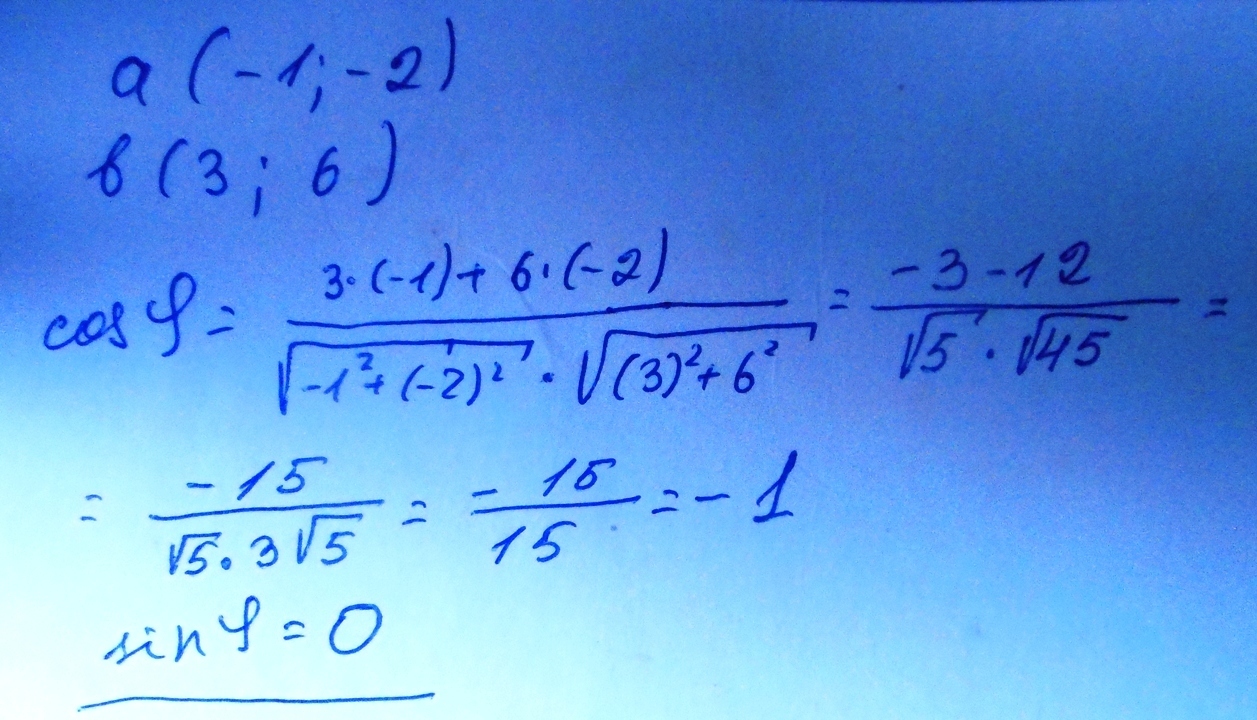 a (-1; -2)
в (3; 6)
cos φ = (3·(-1) + 6·(-2)) / (√(-1² + (-2)²) · √((3)² + 6²)) = (-3 - 12) / (√5 · √45) =
= -15 / (√5 · 3√5) = - 15 / 15 = - 1
sin φ = 0